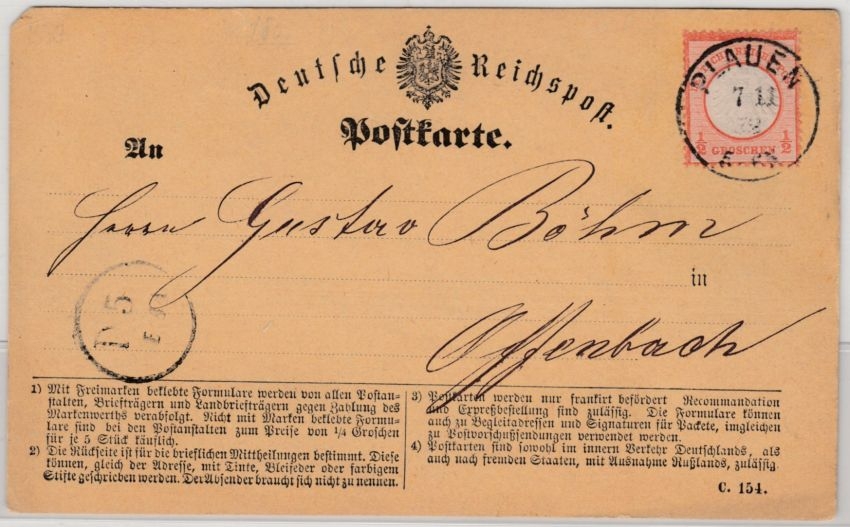 Deutsche Reichspost.
Postkarte.
An
Herrn Gustav Böhm
in
Offenbach
PLAUEN
7 11
72
½ GROSCHEN ½
1) Mit Freimarken beklebte Formulare werden von allen Postan-
stalten, Briefträgern und Landbriefträgern gegen Zahlung des
Markenwerths verabfolgt. Nicht mit Marken beklebte Formu-
lare sind bei den Postanstalten zum Preise von ¼ Groschen
für je 5 Stück käuflich.
2) Die Rückseite ist für die brieflichen Mittheilungen bestimmt. Diese
können, gleich der Adresse, mit Tinte, Bleifeder oder farbigem
Stifte geschrieben werden. Der Absender braucht sich nicht zu nennen.
3) Postkarten werden nur frankirt befördert Recommandation
und Expreßbestellung sind zulässig. Die Formulare können
auch zu Begleitadressen und Signaturen für Packete, imgleichen
zu Postvorschußsendungen verwendet werden.
4) Postkarten sind sowohl im innern Verkehr Deutschlands, als
auch nach fremden Staaten, mit Ausnahme Rußlands, zulässig.
C. 154.